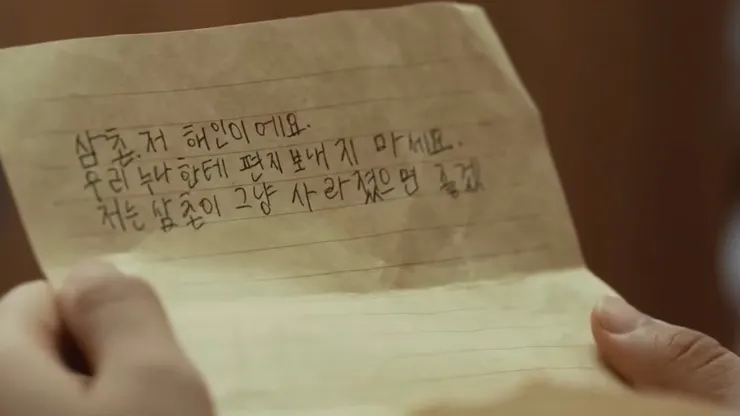 삼촌. 저 해인이에요.
우리 누나한테 편지 보내지 마세요.
저는 삼촌이 그냥 사라졌으면 좋겠